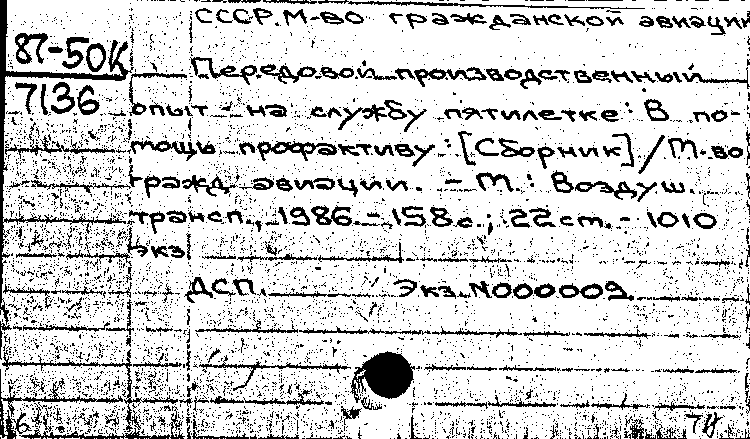 СССР. М-во гражданской авиации
87-50К
7136
Передовой производственный
опыт - на службу пятилетке: В по-
мощь профактиву: [Сборник] / М-во
гражд. авиации. - М.: Воздуш.
трансп., 1986. - 158 с.; 22 cm. - 1010
экз.
ДСП. Экз. N000009.
6